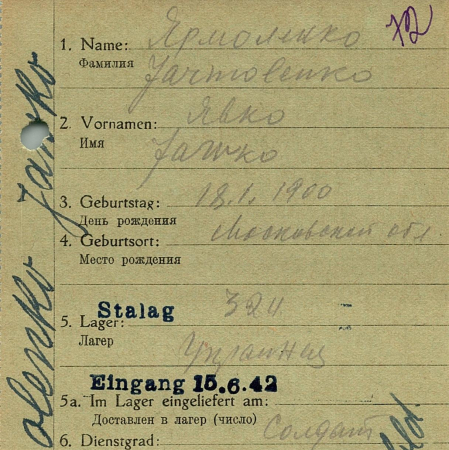 72
1. Name: Ярмоленко
Фамилия
2. Vornamen: Явко
Имя
3. Geburtstag: 18.1.1900
День рождения
4. Geburtsort: Московской обл.
Место рождения
Stalag
5. Lager:
Лагер
Украинец
Eingang 15.6.42
5a. Im Lager eingeliefert am:
Доставлен в лагер (число)
6. Dienstgrad: Солдат
olenko